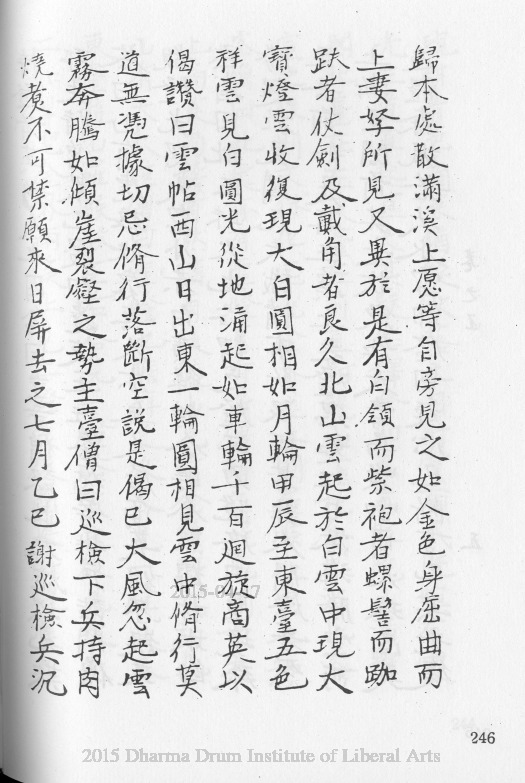 歸本處散滿溪上愿等自旁見之如金色身屈曲而
上妻孥所見又異於是有白領而紫袍者螺髻而跏
趺者仗劍及戴角者良久北山雲起於白雲中現大
寶燈雲收復現大白圓相如月輪甲辰至東臺五色
祥雲見白圓光從地涌起如車輪千百迴旋商英以
偈讚曰雲帖西山日出東一輪圓相見雲中脩行莫
道無憑據切忌脩行落斷空說是偈已大風忽起雲
霧奔騰如傾崖裂壑之勢主臺僧曰巡檢下兵持肉
燒煮不可禁願來日屏去之七月乙巳謝巡檢兵沉
246
2015-04-17
2015 Dharma Drum Institute of Liberal Arts